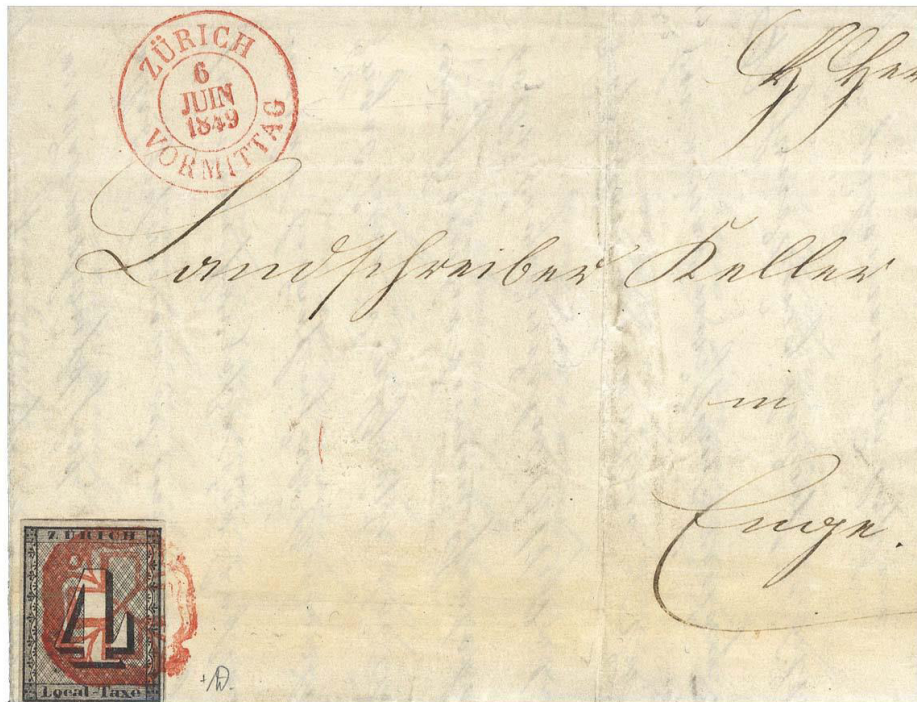 ZÜRICH
6
JUIN
1849
VORMITTAG
Landschreiber Keller
in
Enge.
ZÜRICH
4
Local-Taxe